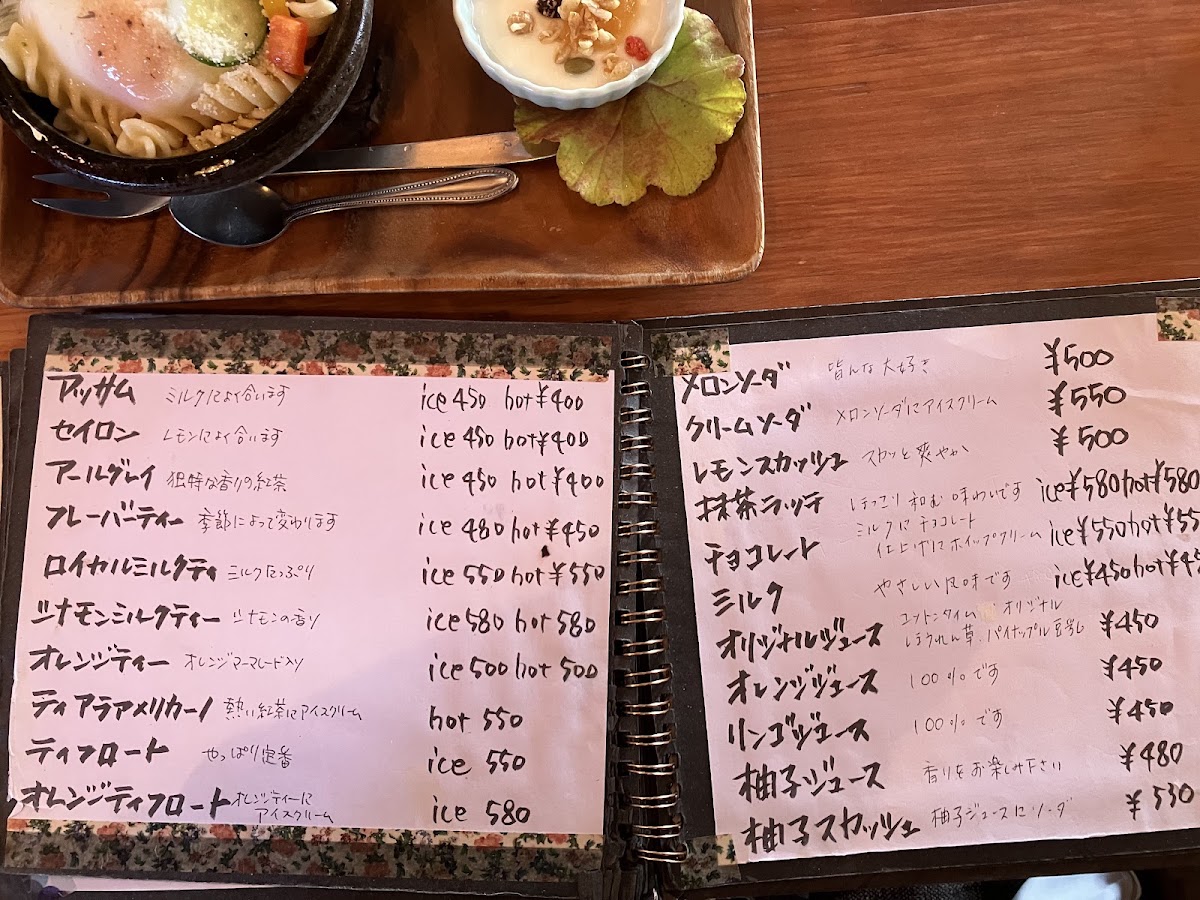 アッサム ミルクによく合います ice 450 hot ¥400
セイロン レモンによく合います ice 450 hot ¥400
アールグレイ 独特な香りの紅茶 ice 450 hot ¥400
フレーバーティー 季節によって変わります ice 480 hot ¥450
ロイヤルミルクティ ミルクたっぷり ice 550 hot ¥550
シナモンミルクティー シナモンの香り ice 580 hot 580
オレンジティー オレンジマーマレード入り ice 500 hot 500
ティアラアメリカーノ 熱い紅茶にアイスクリーム hot 550
ティフロート やっぱり定番 ice 550
オレンジティフロート オレンジティーに
アイスクリーム ice 580
メロンソーダ 皆んな大好き ¥500
クリームソーダ メロンソーダにアイスクリーム ¥550
レモンスカッシュ スカッと爽やか ¥500
抹茶ラッテ ほっこり和む味わいです ice ¥580 hot ¥580
チョコレート ミルクにチョコレート
仕上げにホイップクリーム ice ¥550 hot ¥55
ミルク やさしい風味です ice ¥450 hot ¥45
オリジナルジュース コットンタイム オリジナル
ほうれん草.パイナップル豆乳 ¥450
オレンジジュース 100%です ¥450
リンゴジュース 100%です ¥450
柚子ジュース 香りをお楽しみ下さい ¥480
柚子スカッシュ 柚子ジュースにソーダ ¥530